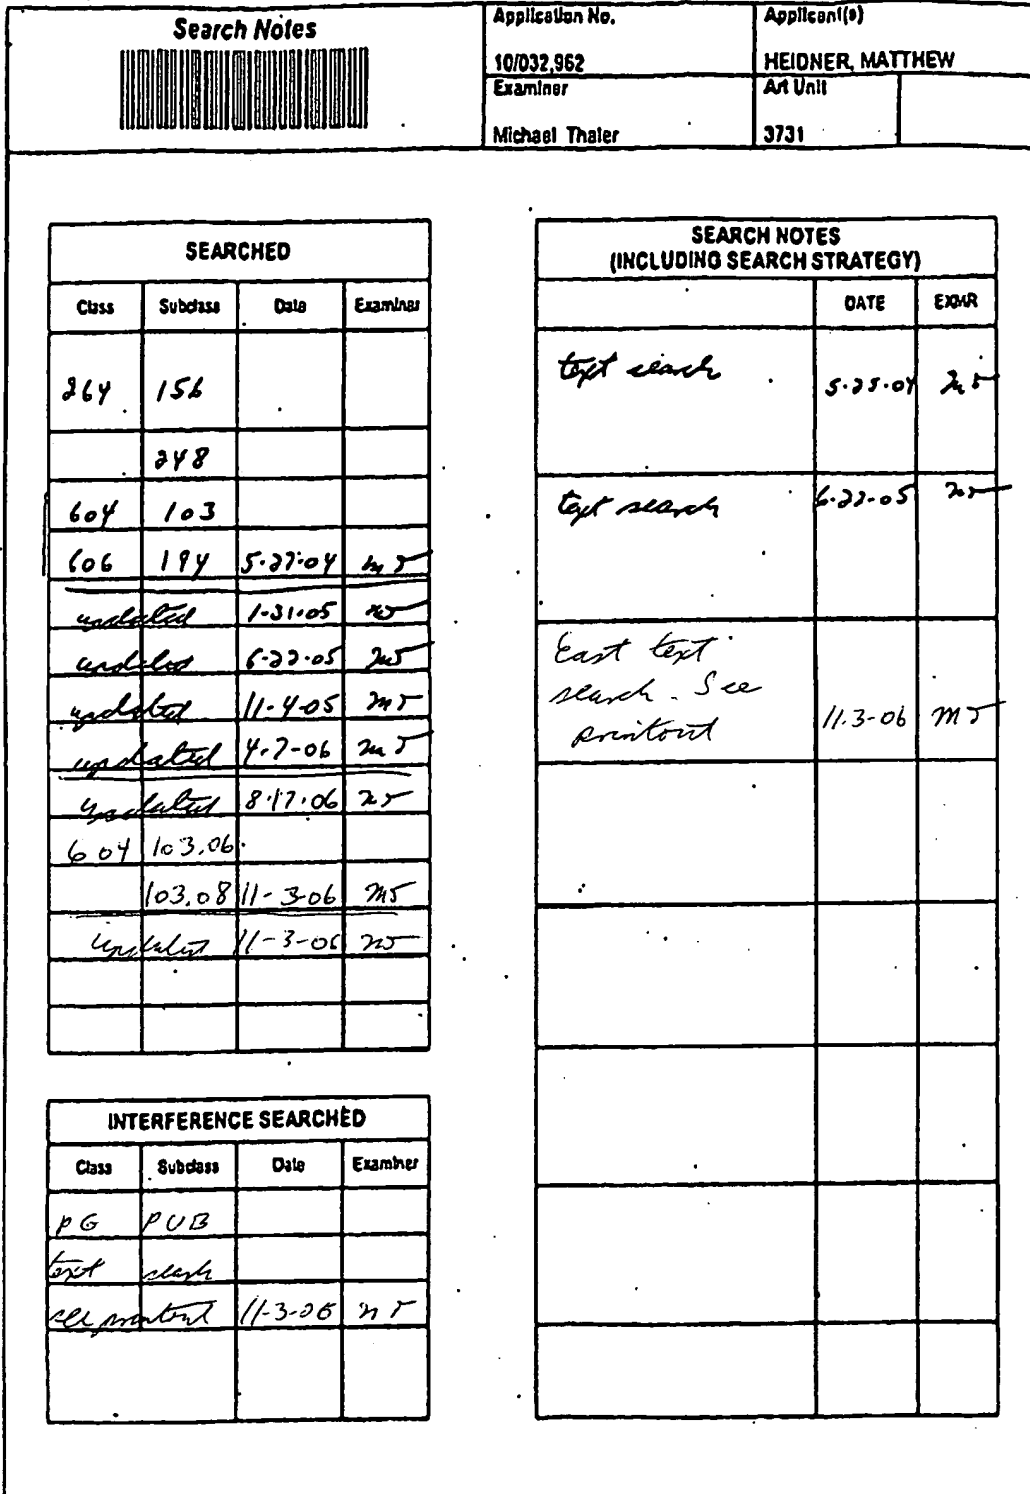 Search Notes
Application No.
Applicant(s)
10/032,962
HEIDNER, MATTHEW
Examiner
Art Unit
Michael Thaler
3731
SEARCHED
Class Subclass Date Examiner
264 156
248
604 103
606 194 5-27-04 MT
updated 1-31-05 MT
updated 6-22-05 MT
updated 11-4-05 MT
updated 4-7-06 MT
updated 8-17-06 MT
604 103.06
103.08 11-3-06 MT
updated 11-3-06 MT
INTERFERENCE SEARCHED
Class Subclass Date Examiner
PG PUB
text search
see printout 11-3-06 MT
SEARCH NOTES
(INCLUDING SEARCH STRATEGY)
DATE EXMR
text search 5-25-04 MT
text search 6-22-05 MT
East text
search. See
printout 11-3-06 MT